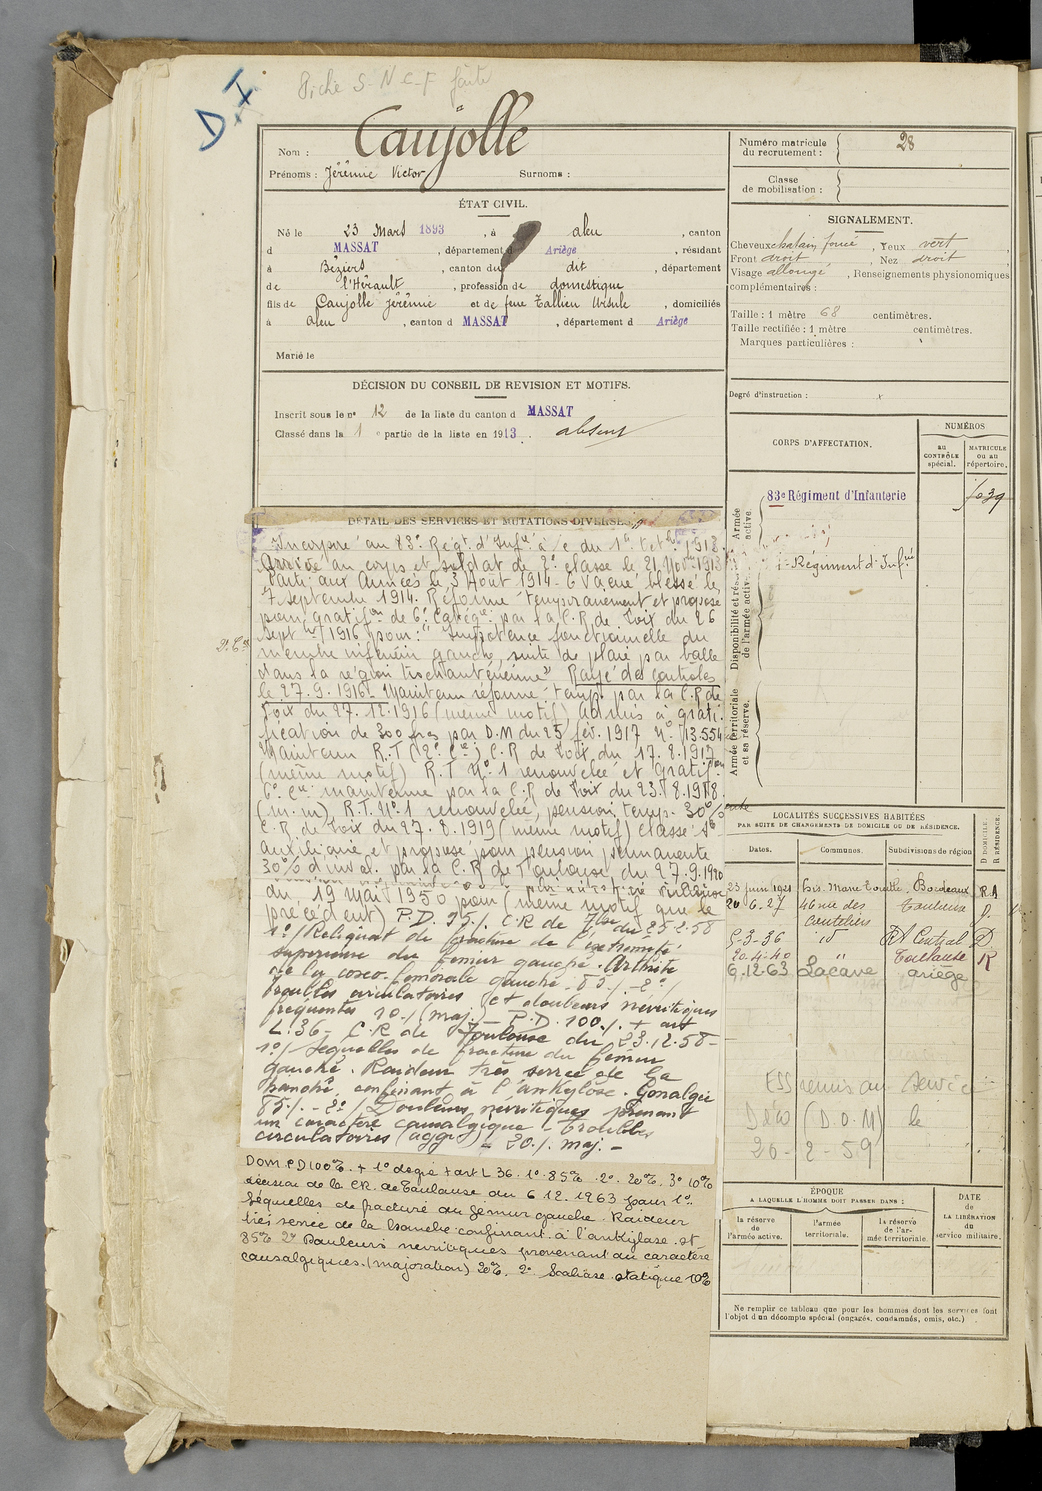 D.I
Fiche S-N-C-F faite
Nom : Caujolle
Prénoms : Jérémie Victor Surnoms :
ÉTAT CIVIL.
Né le 23 Mars 1893, à aleu, canton
d MASSAT, département de Ariège, résidant
à Béziers, canton du dit, département
de l'Hérault, profession de domestique
fils de Caujolle Jérémie et de feue Tallieu Ursule, domiciliés
à aleu, canton d MASSAT, département d Ariège
Marié le
DÉCISION DU CONSEIL DE REVISION ET MOTIFS.
Inscrit sous le nº 12 de la liste du canton d MASSAT
Classé dans la 1e partie de la liste en 1913. absent
DÉTAIL DES SERVICES ET MUTATIONS DIVERSES.
Incorporé au 83e Régt d'Infie à c du 1er Octbre 1913
Arrivé au corps et soldat de 2e classe le 21 Nov 1913
Parti aux Armées le 3 Août 1914 - Evacué blessé le
7 septembre 1914. Réformé temporairement et proposé
pour gratifon de 6e Catég. par la C.R de Foix du 26
Sept 1916 pour : "Impotence fonctionnelle du
membre inférieur gauche, suite de plaie par balle
dans la région trochantérienne" Rayé des contrôles
le 27.9.1916 - Maintenu réformé temp. par la C.R de
Foix du 27.12.1916 (même motif) Admis à grati-
fication de 300 frcs par D.M du 25 fév. 1917 Nº 13.554
Maintenu R.T (2e Cie) C.R de Foix du 17.8.1917
(même motif) R.T Nº 1 renouvelée et Gratifon
6e Cie maintenue par la C.R de Foix du 23.8.1918
(m.m) R.T. Nº 1 renouvelée, pension temp. 30%
C.R de Foix du 27.8.1919 (même motif) classé s.
auxiliaire et proposé pour pension permanente
30% d'inval. par la C.R de Toulouse, du 27.9.1920
du 19 Mai 1950 pour (même motif que le
précédent) P.D. 95% C.R de Tlse du 25.2.58
1º/ Reliquat de fracture de l'extrémité
supérieure du fémur gauche. Arthrite
de la coxo-fémorale gauche. 85% - 2º/
Troubles circulatoires et douleurs névritiques
fréquentes 10% (maj.) - P.D. 100% + art
L.36 - C.R de Toulouse du 23.12.58 -
1º/ Séquelles de fracture du fémur
gauche. Raideur très serrée de la
hanche, confinant à l'ankylose. Gonalgie
85% - 2º/ Douleurs névritiques prenant
un caractère causalgique - Troubles
circulatoires (agg) = 20% maj. -
Dom. PD 100% + 1º degré + art L 36. 1º 85% 2º 20% 3º 10%
décision de la CR. de Toulouse du 6 12.1963 pour 1º
Séquelles de fracture du fémur gauche. Raideur
très serrée de la hanche confinant à l'ankylose et
85% 2º Douleurs nevritiques provenant du caractère
causalgiques (majoration) 20%. 3º Scoliose statique 10%
Numéro matricule
du recrutement : 28
Classe
de mobilisation :
SIGNALEMENT.
Cheveux chatain foncé, Yeux vert
Front droit, Nez droit
Visage allongé, Renseignements physionomiques
complémentaires :
Taille : 1 mètre 68 centimètres.
Taille rectifiée : 1 mètre centimètres.
Marques particulières :
Degré d'instruction :
CORPS D'AFFECTATION.
NUMÉROS
au CONTRÔLE spécial.
MATRICULE ou au répertoire.
Armée active.
83e Régiment d'Infanterie
Disponibilité et réserve de l'armée active.
Régiment d'Infrie
Armée territoriale et sa réserve.
LOCALITÉS SUCCESSIVES HABITÉES
PAR SUITE DE CHANGEMENTS DE DOMICILE OU DE RÉSIDENCE.
Dates. Communes. Subdivisions de région
D. DOMICILE. R. RÉSIDENCE.
23 juin 1921 Bordeaux R.
20.6.27 46 rue des Couteliers Toulouse
5-3-36 id RN Central D
20.4.40 " Toulouse R
6.12.63 Lacave ariège
remis au service
(D.O.M) le
20-2-59
ÉPOQUE
A LAQUELLE L'HOMME DOIT PASSER DANS :
la réserve de l'armée active.
l'armée territoriale.
la réserve de l'armée territoriale.
DATE de LA LIBÉRATION du service militaire.
Ne remplir ce tableau que pour les hommes dont les services font
l'objet d'un décompte spécial (engagés, condamnés, omis, etc.)